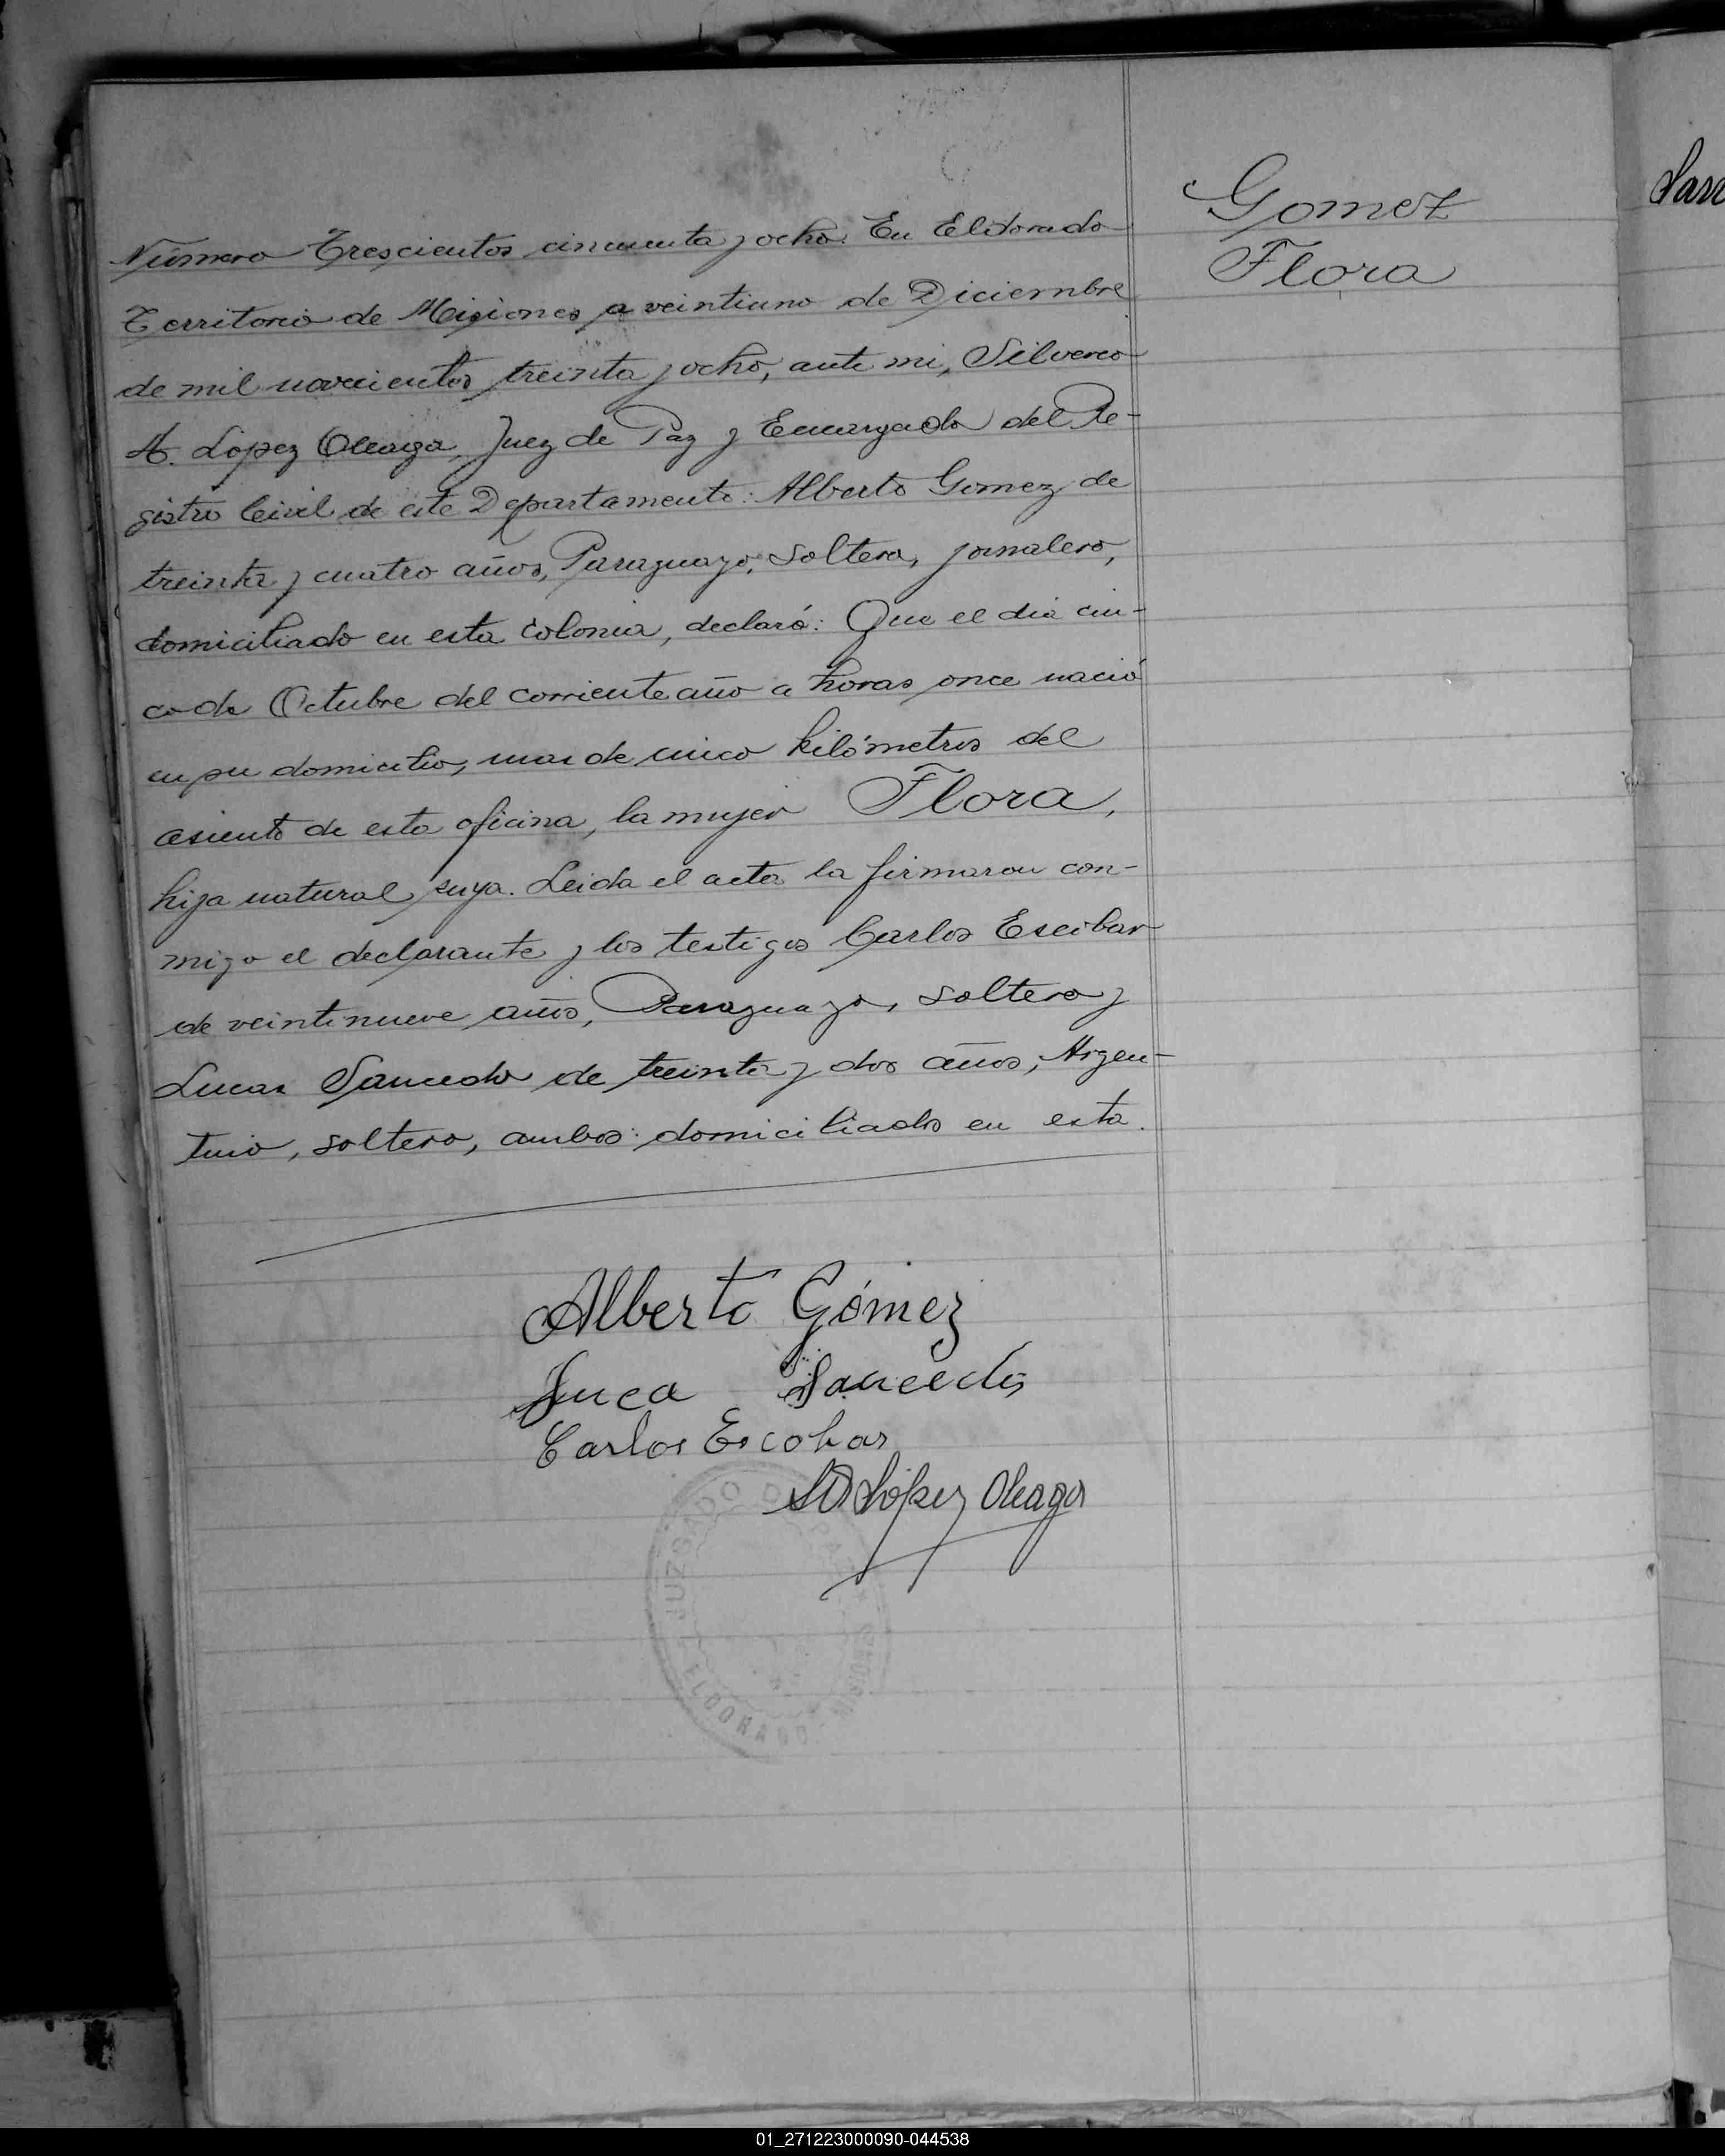 Gomez
Flora
Número Trescientos cincuenta y ocho. En Eldorado
Territorio de Misiones a veintiuno de Diciembre
de mil novecientos treinta y ocho, ante mi, Silverio
A. López Oleaga, Juez de Paz y Encargado del Re-
gistro Civil de este Departamento: Alberto Gomez de
treinta y cuatro años, Paraguayo, soltero, jornalero,
domiciliado en esta Colonia, declaró: Que el dia cin-
co de Octubre del corriente año a horas once nació
en su domicilio, mas de cinco kilómetros del
asiento de esta oficina, la mujer Flora,
hija natural suya. Leida el acta la firmaron con-
migo el declarante y los testigos Carlos Escibar
de veintinueve años, Paraguayo, soltero y
Lucas Saucedo de treinta y dos años, Argen-
tino, soltero, ambos domiciliados en esta.
Alberto Gómez
Luca Saucedo
Carlos Escobar
López Oleaga
JUZGADO DE PAZ
ELDORADO - MISIONES
01_271223000090-044538